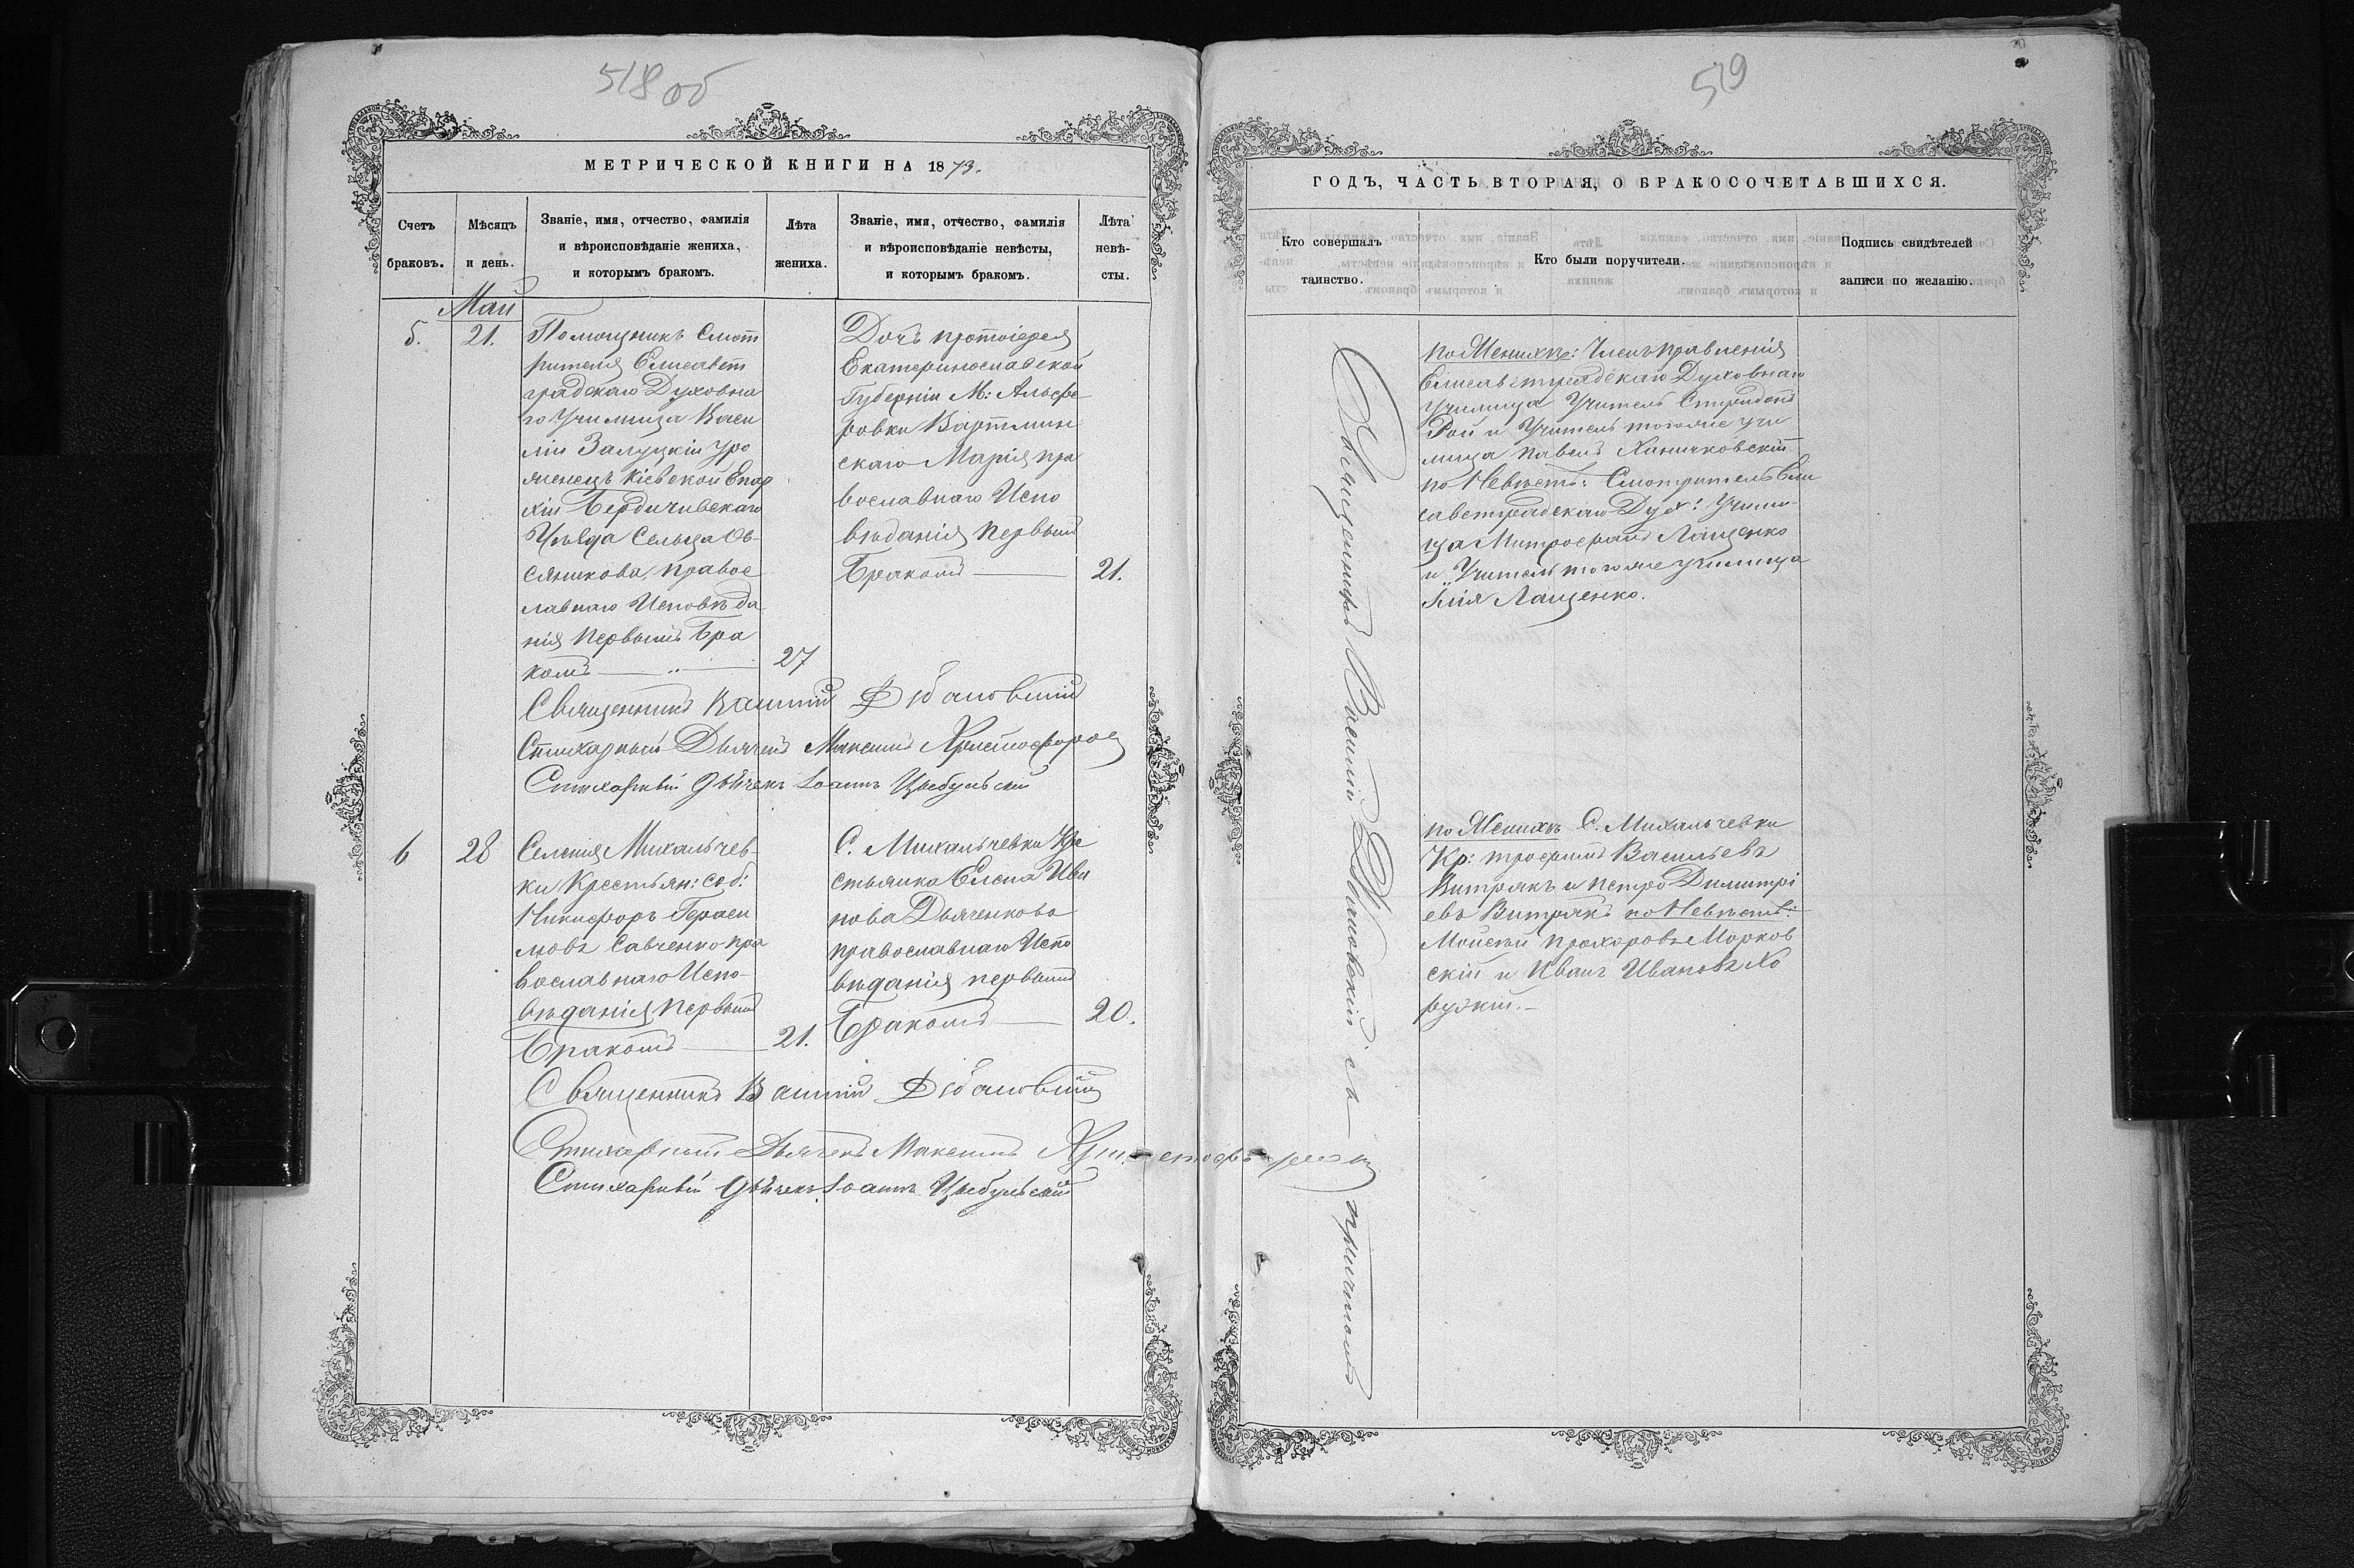 518 об
МЕТРИЧЕСКОЙ КНИГИ НА 1873.
Счетъ браковъ.
Мѣсяцъ и день.
Званіе, имя, отчество, фамилія
и вѣроисповѣданіе жениха,
и которымъ бракомъ.
Лѣта жениха.
Званіе, имя, отчество, фамилія
и вѣроисповѣданіе невѣсты,
и которымъ бракомъ.
Лѣта невѣ-
сты.
Май
5.
21.
Помощникъ Смот
рителя Елисавет
градскаго Духовна
го Училища Васи
лій Залуцкій уро
женецъ Кіевской Епар
хіи Бердичивскаго
Уѣзда Сельца Ов-
сяникова, правос
лавнаго Исповѣда
нія Первымъ Бра
комъ
27
Дочь протоіерея
Екатеринославской
Губерніи М: Альфе
ровки
скаго Марія пра
вославнаго Испо
вѣданія Первымъ
Бракомъ
21.
Священникъ Василій
Стихарный Дьячекъ Максимъ Христофоров
Стихарный Дьячекъ Іоаннъ Цыбульскій
6
28
Селенія Михальчев-
ки Крестьян: соб:
Никифоръ Гераси
мовъ Савченко пра
вославнаго Испо-
вѣданія Первымъ
Бракомъ
21.
С. Михальчевки Кре
стьянка Елена Иви
нова Дьяченкова
православнаго Испо
вѣданія первымъ
Бракомъ
20.
Священникъ Василій
Стихарный Дьячекъ Максимъ Христофоров
Стихарный Дьячекъ Іоаннъ Цыбульскій
519
ГОДЪ, ЧАСТЬ ВТОРАЯ, О БРАКОСОЧЕТАВШИХСЯ.
Кто совершалъ
таинство.
Кто были поручители.
Подпись свидѣтелей
записи по желанію.
Священникъ Василій съ причтомъ
по Женихѣ: Членъ правленія
Елисаветградскаго Духовнаго
училища Учитель
и Учитель тогоже учи
лища Павелъ Ханичковскій
по Невѣстѣ: Смотритель Ели
саветградскаго Дух: Учили-
ща Митрофанъ Лащенко
и Учитель тогоже училища
Илія Лащенко.
по Женихѣ С. Михальчевки
Кр: Трофимъ Васильевъ
Витрякъ и Петро Димитрі
евъ Витрякъ по Невѣстѣ:
Моисей Прохоровъ Морков
скій и Иванъ Ивановъ Хо
рузкій.-